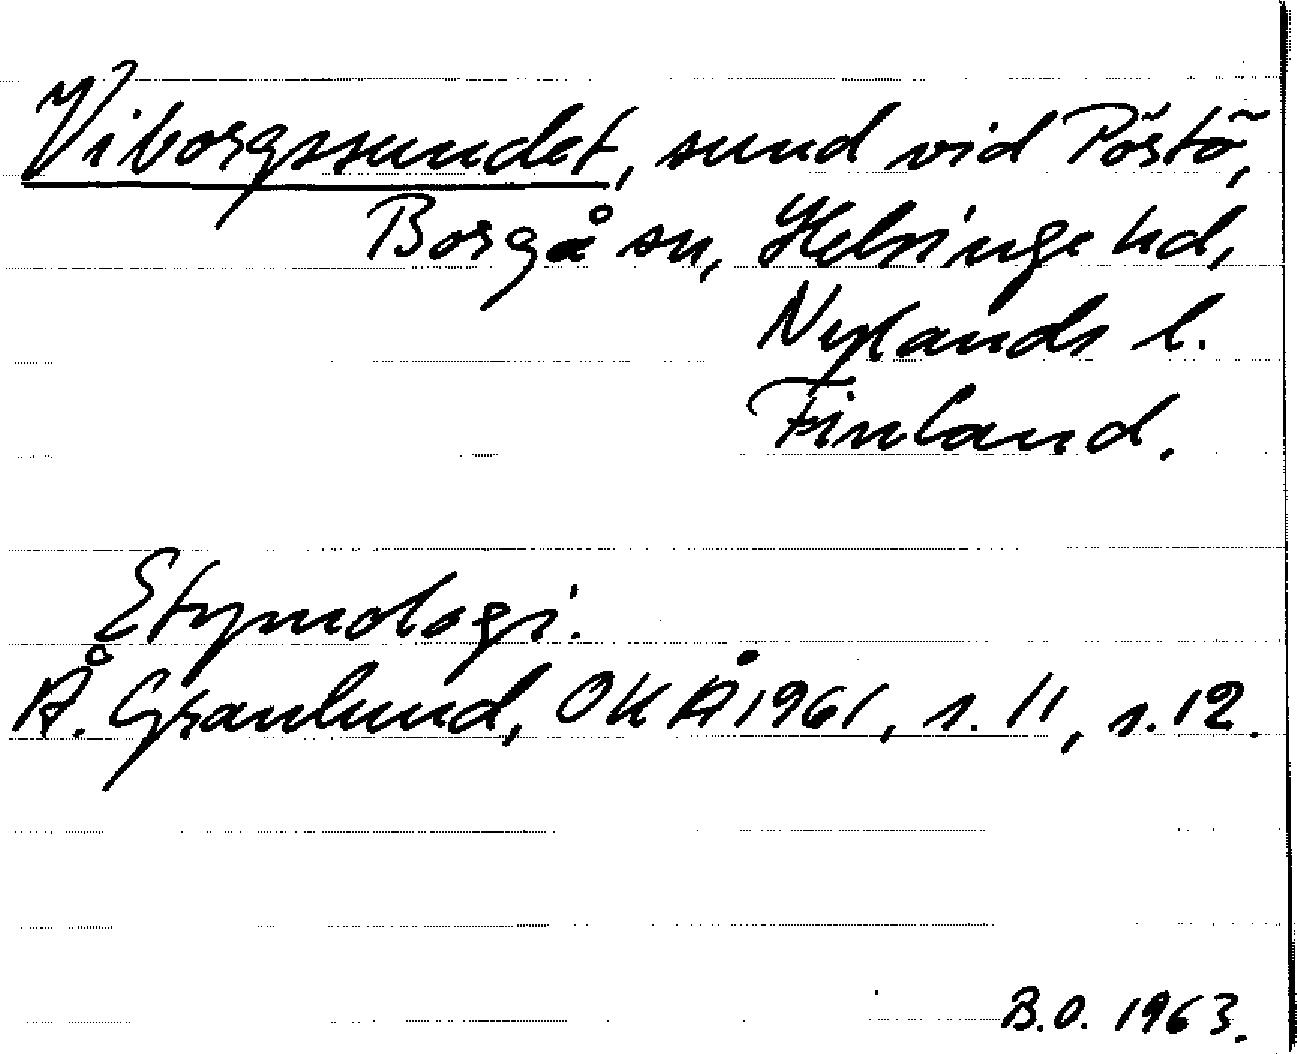 Viborgssundet, sund vid Pöstö,
Borgå sn, Helsinge hd,
Nylands l.
Finland.
Etymologi.
Å. Granlund, OKÅ 1961, s. 11, s. 12.
B.O. 1963.